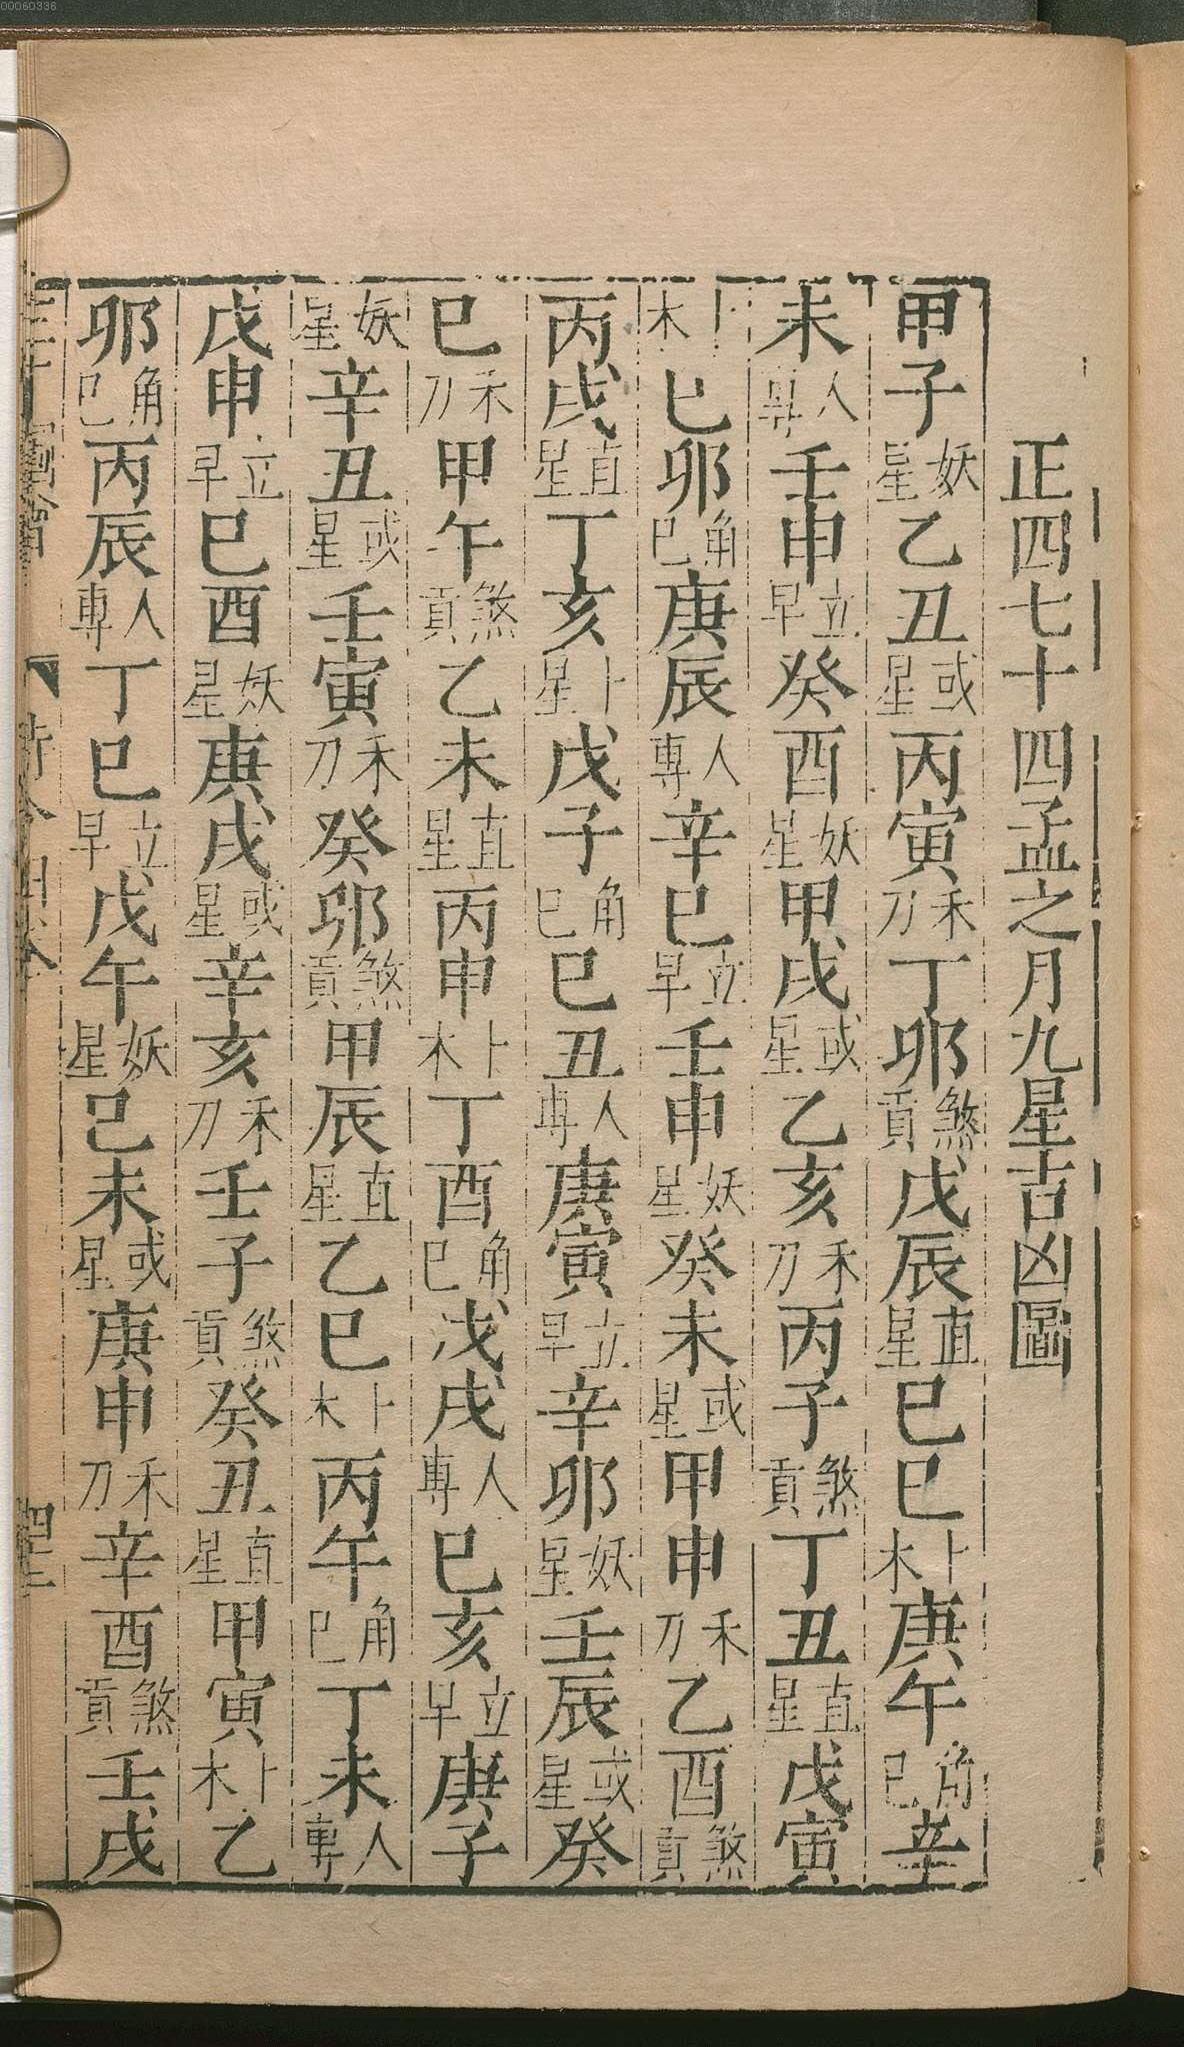 00060336
正四七十四孟之月九星吉凶圖
甲子妖星乙丑或星丙寅禾刀丁卯煞貢戊辰直星巳巳卜木庚午角巳辛
未人專壬申立早癸酉妖星甲戌或星乙亥禾刀丙子煞貢丁丑直星戊寅
卜木巳卯角巳庚辰人專辛巳立早壬申妖星癸未或星甲申禾刀乙酉煞貢
丙戌直星丁亥卜星戊子角巳巳丑人專庚寅立早辛卯妖星壬辰或星癸
巳禾刀甲午煞貢乙未直星丙申卜木丁酉角巳戊戌人專巳亥立早庚子
妖星辛丑或星壬寅禾刀癸卯煞貢甲辰直星乙巳卜木丙午角巳丁未人專
戊申立早巳酉妖星庚戌或星辛亥禾刀壬子煞貢癸丑直星甲寅卜木乙
卯角巳丙辰人專丁巳立早戊午妖星己未或星庚申禾刀辛酉煞貢壬戌